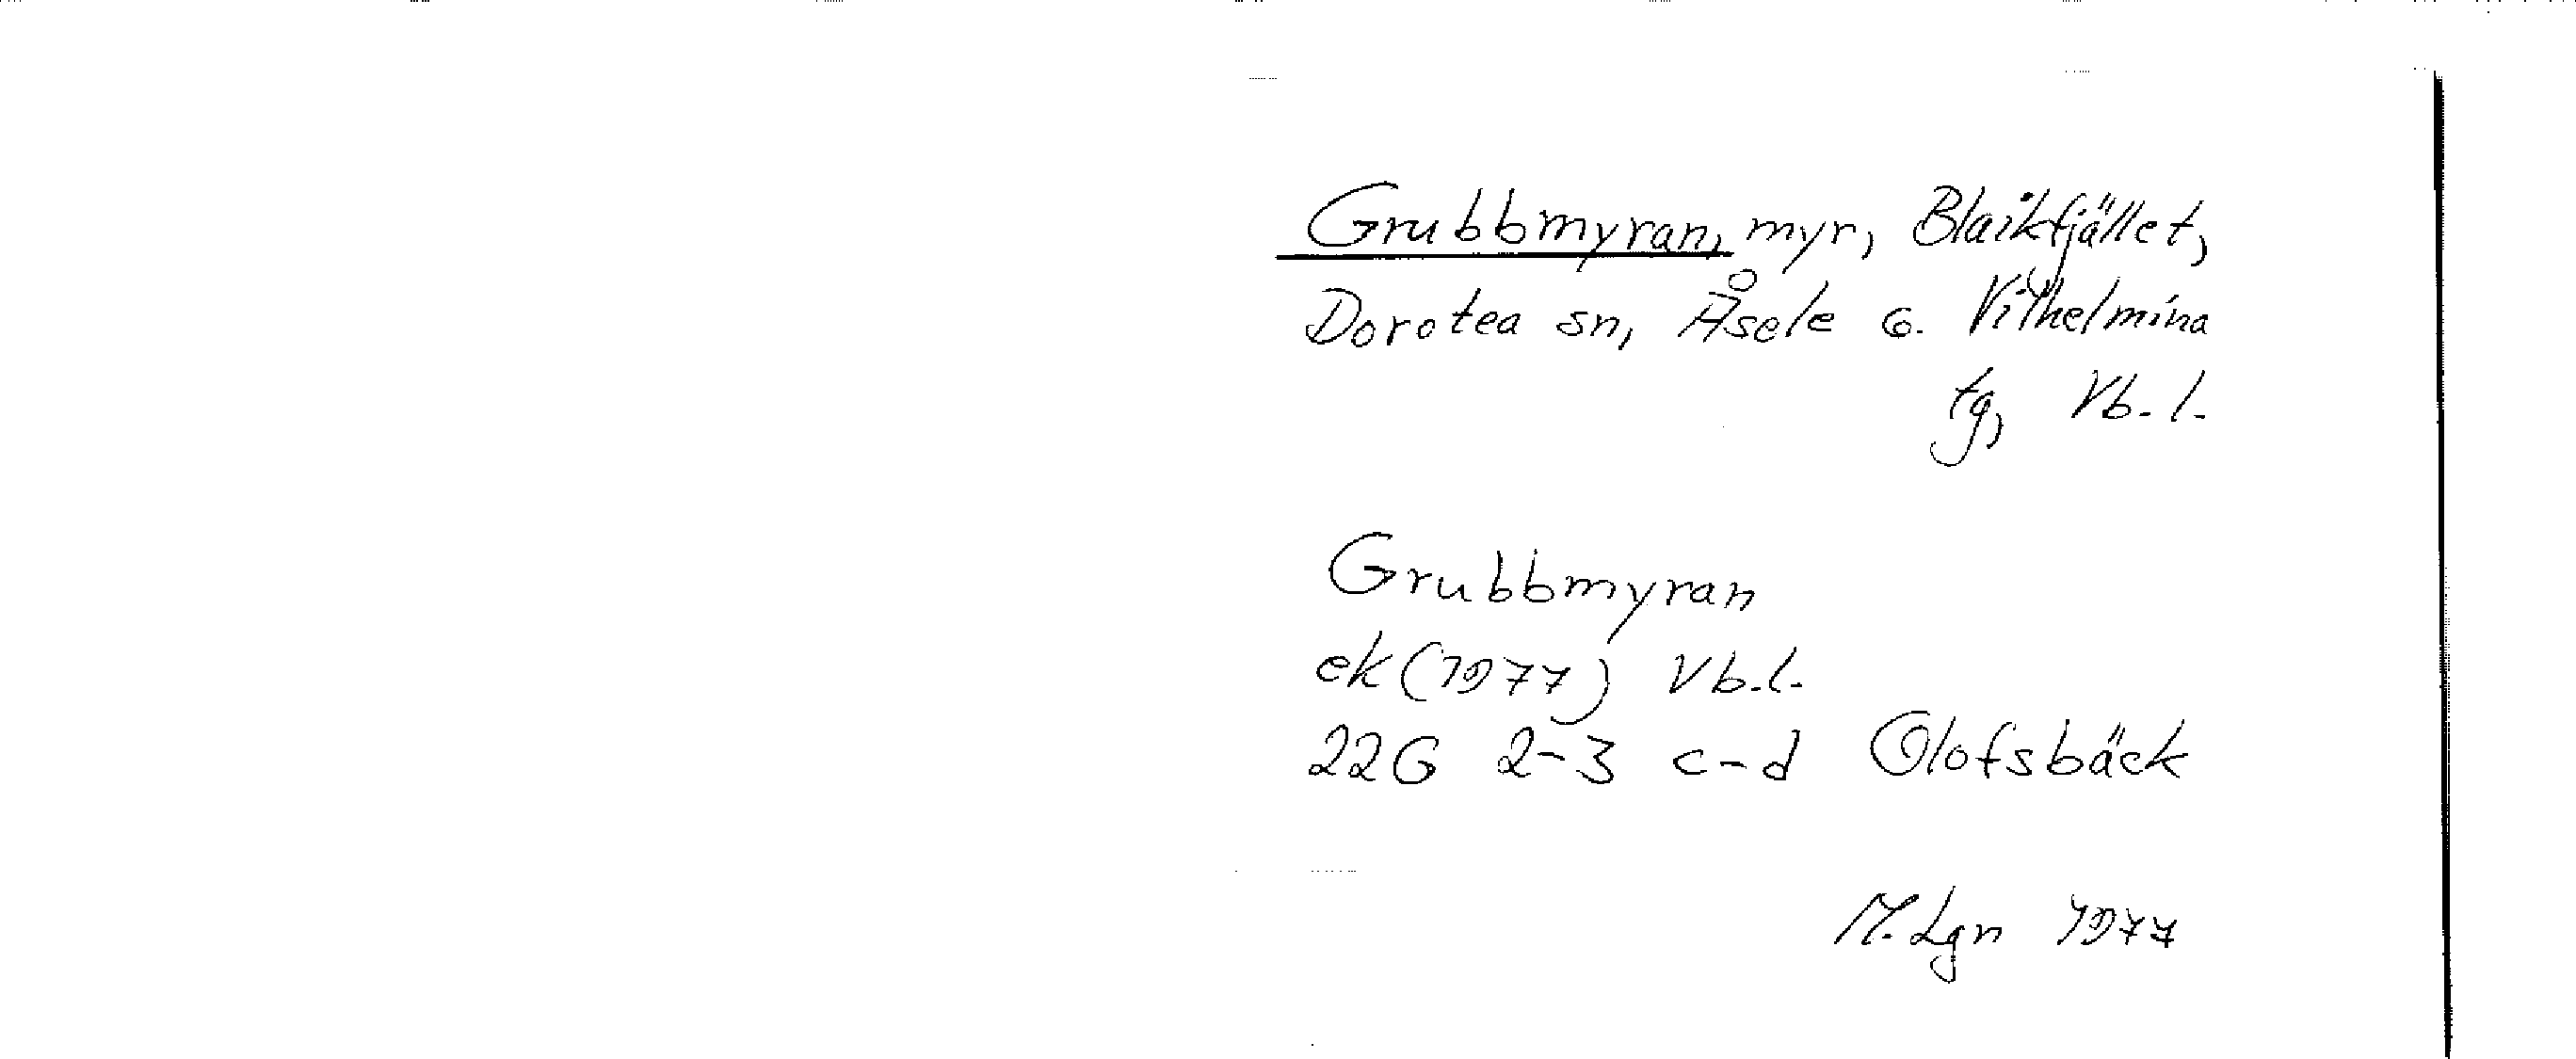 Grubbmyran, myr, Blaikfjället,
Dorotea sn, Åsele o. Vilhelmina
tg, Vb. l.
Grubbmyran
ek (1977) Vb.l.
22G 2-3 c-d Olofsbäck
M. Lgn 1977